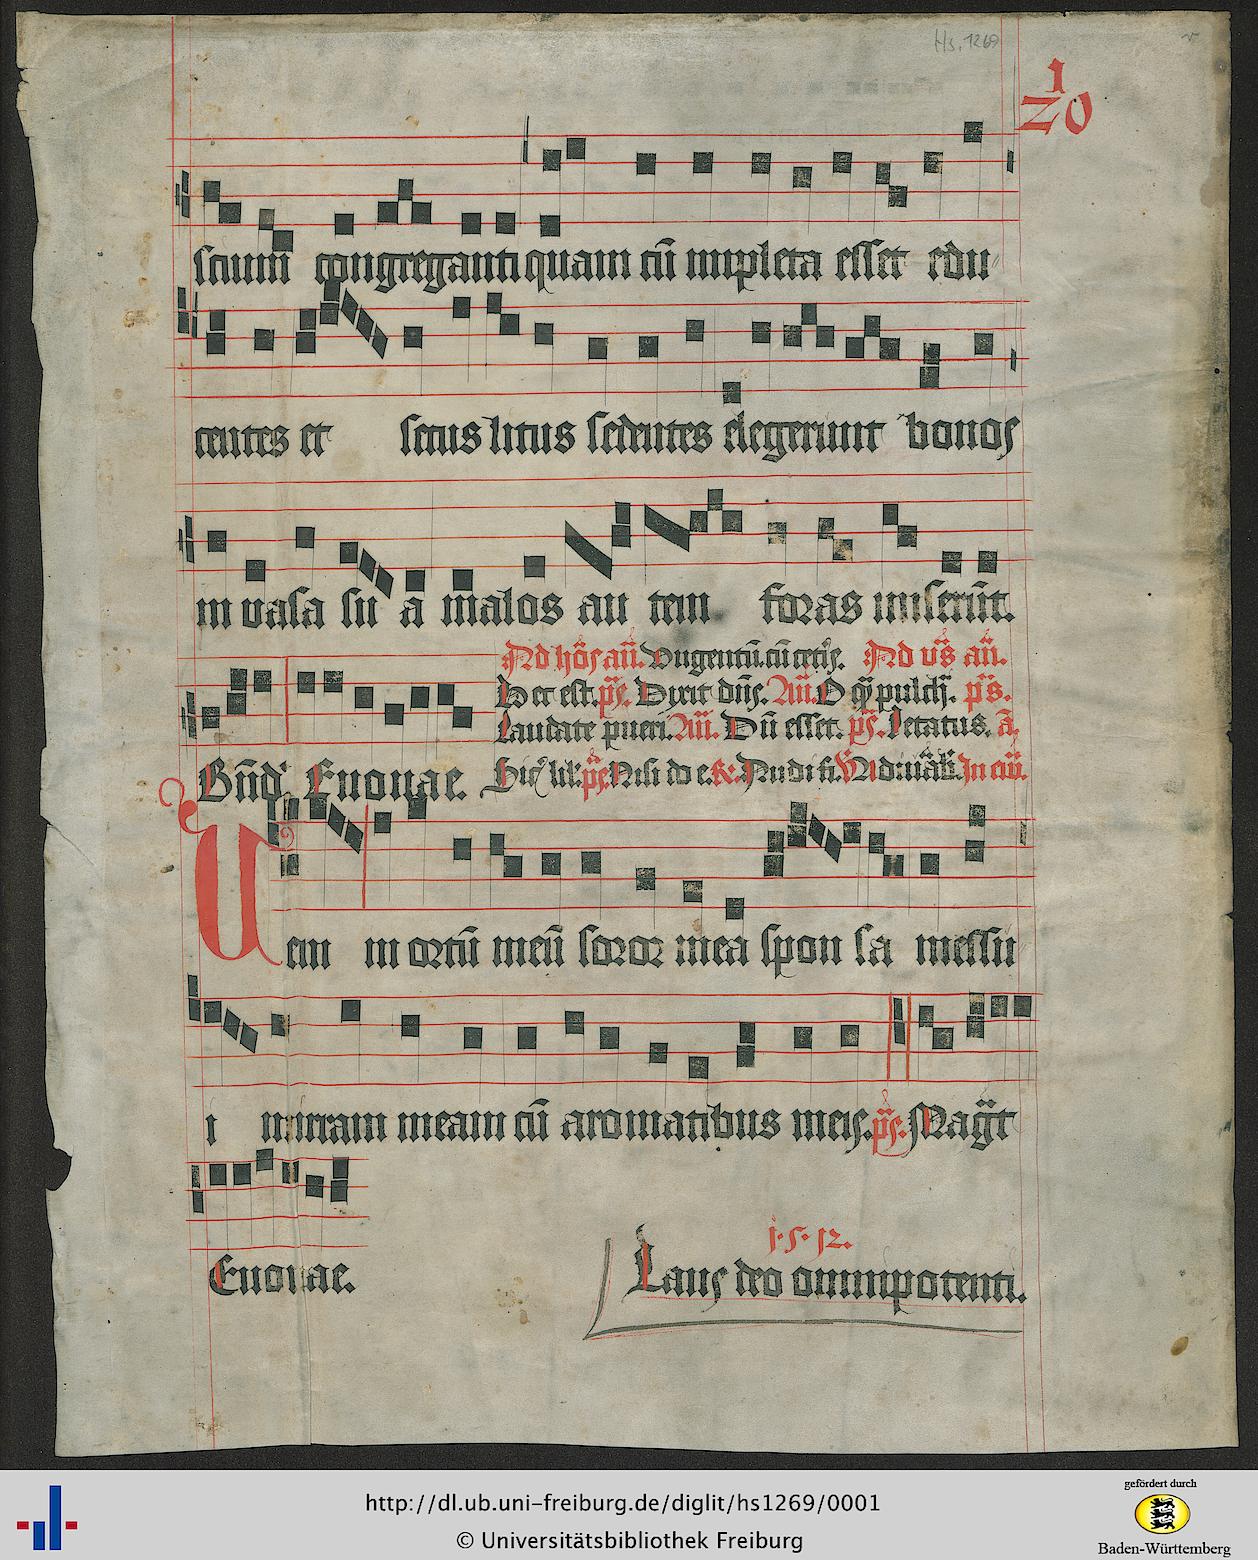 Hs. 1269
1
20
scium congreganti quam cū impleta esset edu
centes et secus litus sedentes elegerunt bonos
in vasa su a malos au tem foras miserūt.
Ad hōs añ. Vngentū. cū cetis. Ad vs̄ añ.
Hec est. ps. Dixit dñs. Añ. O q̄ pulch. ps.
Laudate pueri. Añ. Dū esset. ps. Letatus. ā.
Bn̄d Euouae. ps. Nisi do
U
em in ortū meū soror mea spon sa messu
i mirram meam cū aromatibus meis. ps. Magt
Euouae.
1·5·12.
Laus deo omnipotenti.
http://dl.ub.uni-freiburg.de/diglit/hs1269/0001
© Universitätsbibliothek Freiburg
gefördert durch
Baden-Württemberg